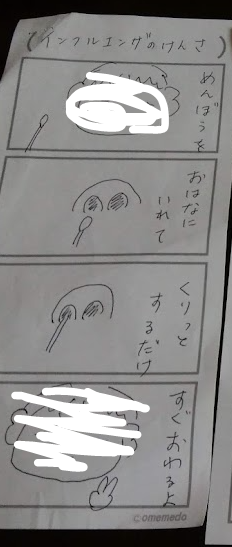 (インフルエンザのけんさ)
めんぼうを
おはなに
いれて
くりっと
するだけ
すぐおわるよ
©omemedo